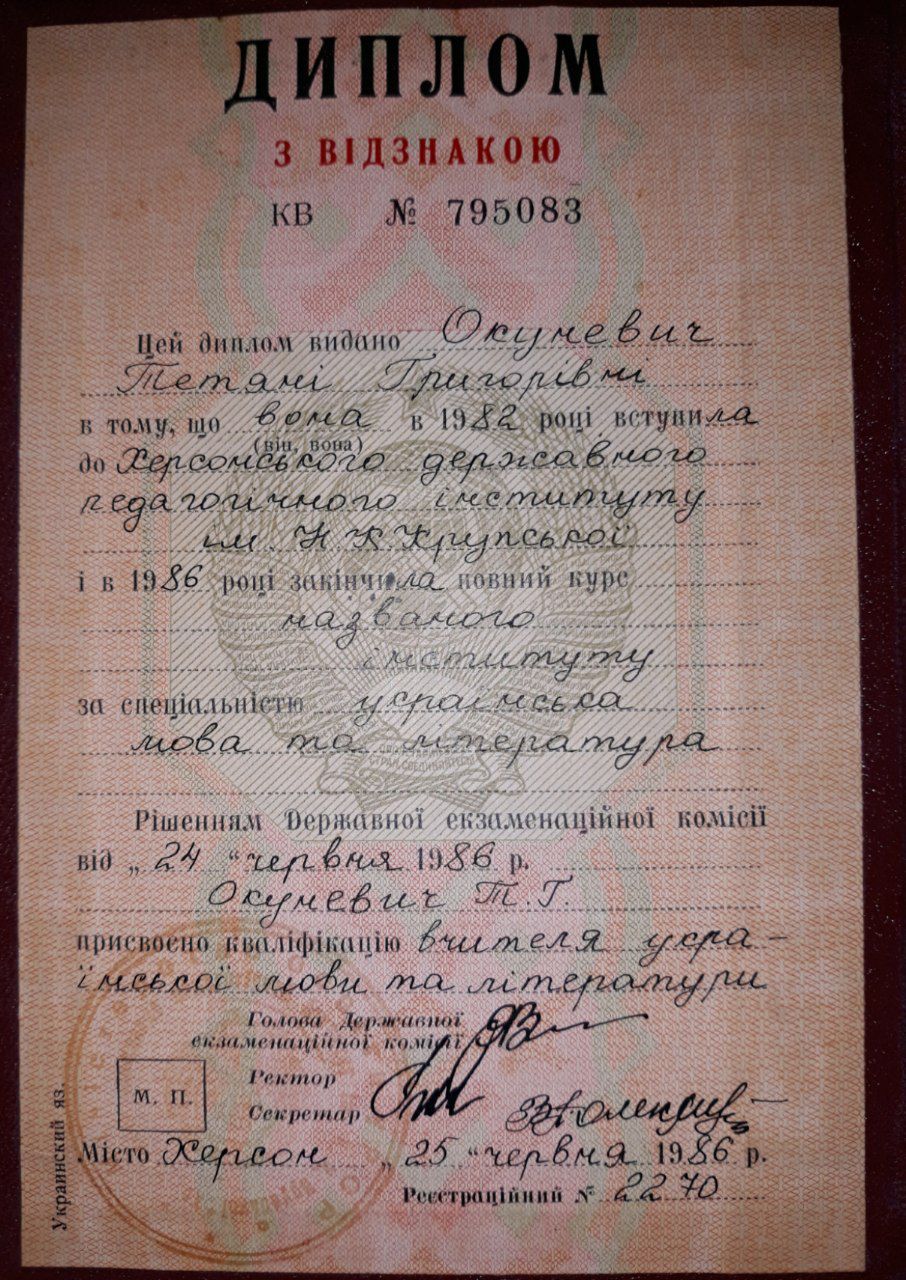 ДИПЛОМ
З ВІДЗНАКОЮ
КВ № 795083
Цей диплом видано Окуневич
Тетяні Григорівні
в тому, що вона в 1982 році вступила
(він, вона)
до Херсонського державного
педагогічного інституту
ім. Н К Крупської
і в 1986 році закінчила повний курс
названого
інституту
за спеціальністю українська
мова та література
Рішенням Державної екзаменаційної комісії
від „24" червня 1986 р.
Окуневич Т.Г.
присвоєно кваліфікацію вчителя укра-
їнської мови та літератури
Голова Державної
екзаменаційної комісії
Ректор
М. П.
Секретар
Місто Херсон „25" червня 1986 р.
Реєстраційний № 2270
Украинский яз.